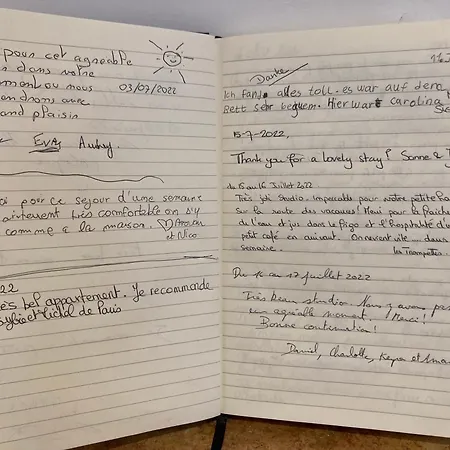 pour cet agreable
dans votre
03/07/2022
ment ou nous
endrons avec
and plaisir
Eva Aubry.
pour ce sejour d'une semaine
artement très comfortable on s'y
comme a la maison.
et Nico
22
ès bel appartement. Je recommande
de Paris
Danke
Ich fand alles toll. es war auf dem
Bett sehr bequem. Hier war Carolina
15-7-2022,
Thank you for a lovely stay! Sonne &
du 15 au 16 Juillet 2022
Très joli studio, impeccable pour notre petite
Sur la route des vacances! Merci pour la fraîche
de l'eau et jus dans le frigo et l'hospitalité d'
petit café en arrivant. On revient vite .... dans
semaine. les Trompettes
Du 16 au 17 juillet 2022
Très beau studio. Nous y avons pas
un agréable moment. Merci!
Bonne continuation!
Daniel, Charlotte, et